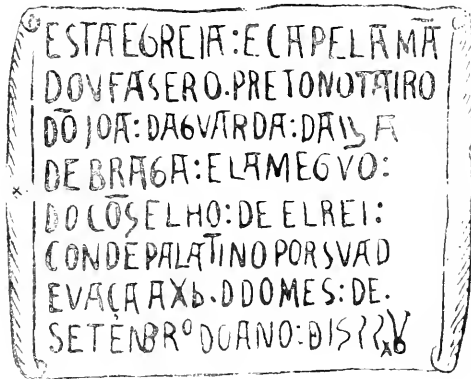 ESTA EGREIA : E CAPELA MÃ
DOU FASER O . PRETONOTAIRO
DÕ JOÃ : DAGUARDA : DA
DE BRAGA : E LAMEGUO :
DO CÕSELHO : DE ELREI :
CONDE PALATINO POR SUA D
EVAÇA A XƄ . D DO MES : DE .
SETENBRº DO ANO :